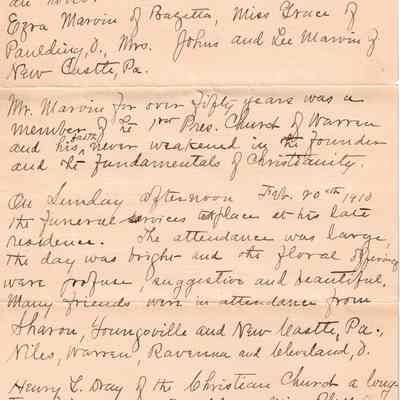 an hour.
Ezra Marvin of Bazetta, Miss Grace of
Paulding, O., Mrs. Johns and Lee Marvin of
New Castle, Pa.
Mr. Marvin for over fifty years was a
member of the 1st Pres. Church of Warren
and his faith never weakened in the Founder
and the Fundamentals of Christianity.
On Sunday afternoon Feb. 20th, 1910
the funeral services at place at his late
residence. The attendance was large,
the day was bright and the floral offerings
were profuse, suggestive and beautiful.
Many friends were in attendance from
Sharon, Youngsville and New Castle, Pa.,
Niles, Warren, Ravenna and Cleveland, O.
Henry L. Dray of the Christian Church a long-